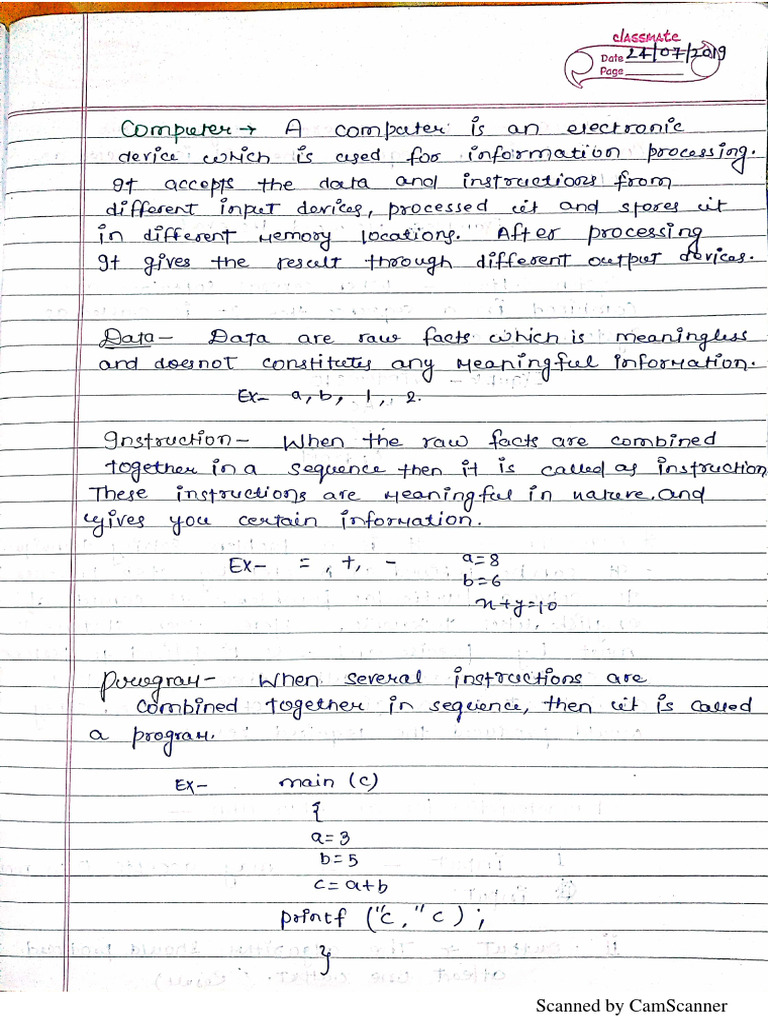 classmate
Date 24/07/2019
Page
Computer → A computer is an electronic
device which is used for information processing.
It accepts the data and instructions from
different input devices, processed it and stores it
in different memory locations. After processing
It gives the result through different output devices.
Data - Data are raw facts which is meaningless
and doesnot constitutes any meaningful information.
Ex- a, b, 1, 2.
Instruction - When the raw facts are combined
together in a sequence then it is called as instruction
These instructions are meaningful in nature, and
gives you certain information.
Ex- = , +, - a=8
b=6
x+y=10
Program - When several instructions are
combined together in sequence, then it is called
a program.
Ex- main (c)
{
a=3
b=5
c=a+b
printf ("c," c) ;
}
Scanned by CamScanner